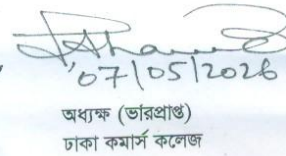 07/05/2026
অধ্যক্ষ (ভারপ্রাপ্ত)
ঢাকা কমার্স কলেজ